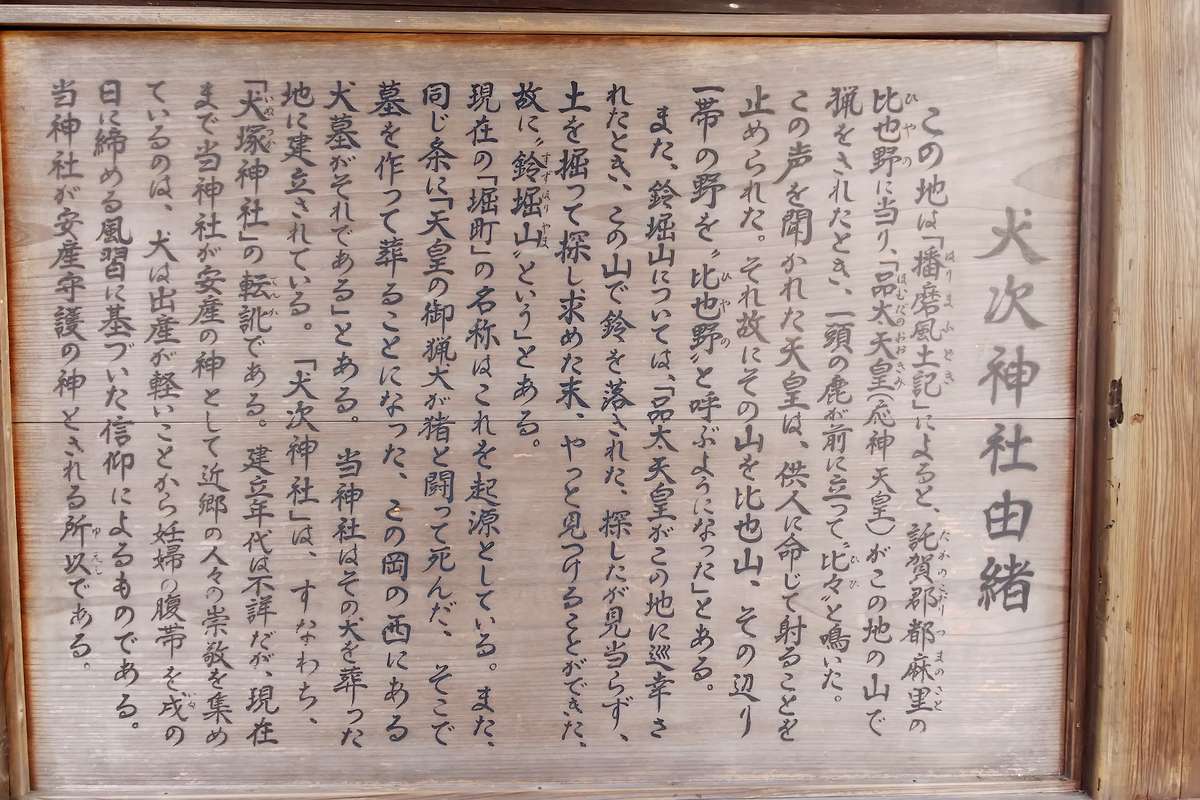 犬次神社由緒
この地は「播磨風土記」によると、託賀郡都麻里の
比也野に当り、「品太天皇(応神天皇)がこの地の山で
猟をされたとき、一頭の鹿が前に立って〝比々〟と鳴いた。
この声を聞かれた天皇は、供人に命じて射ることを
止められた。それ故にその山を比也山、その辺り
一帯の野を〝比也野〟と呼ぶようになった」とある。
また、鈴堀山については、「品太天皇がこの地に巡幸さ
れたとき、この山で鈴を落された、探したが見当らず、
土を掘って探し求めた末、やっと見つけることができた、
故に〝鈴堀山〟という」とある。
現在の「堀町」の名称はこれを起源としている。また、
同じ条に「天皇の御猟犬が猪と闘って死んだ、そこで
墓を作って葬ることになった、この岡の西にある
犬墓がそれである」とある。当神社はその犬を葬った
地に建立されている。「犬次神社」は、すなわち、
「犬塚神社」の転訛である。建立年代は不詳だが、現在
まで当神社が安産の神として近郷の人々の崇敬を集め
ているのは、犬は出産が軽いことから妊婦の腹帯を戌の
日に締める風習に基づいた信仰によるものである。
当神社が安産守護の神とされる所以である。